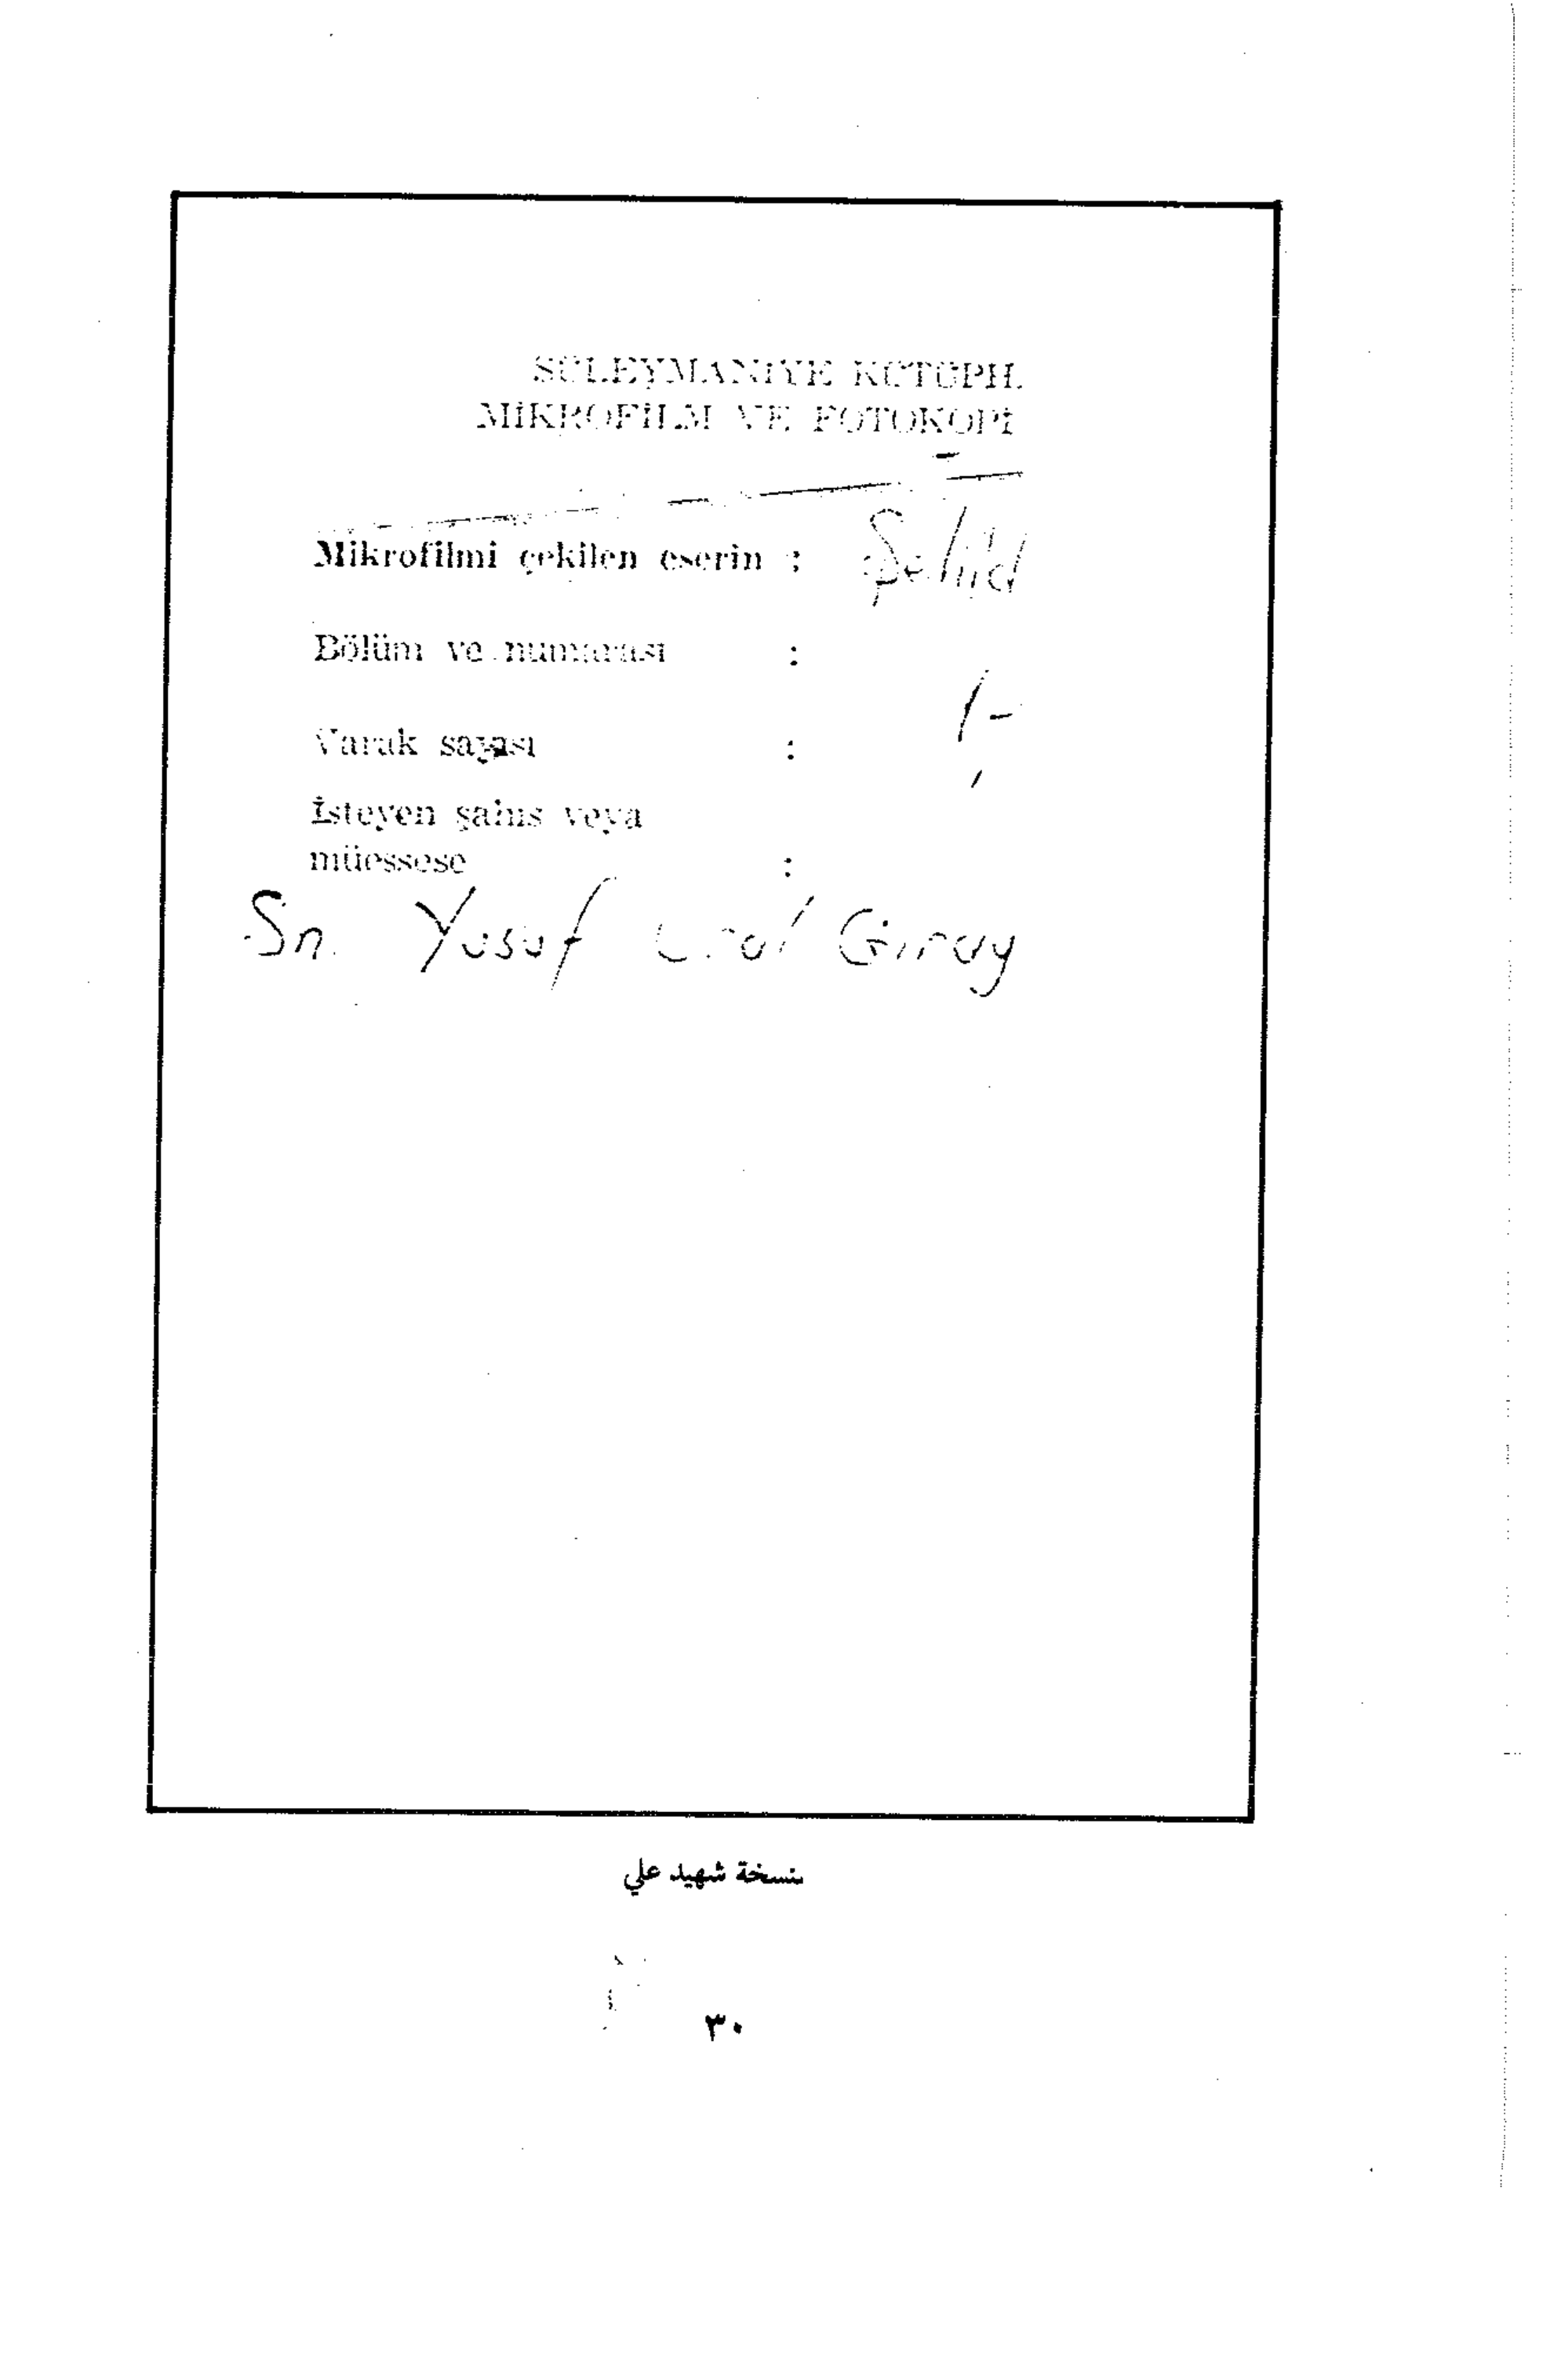 SÜLEYMANİYE KÜTÜPH.
MİKROFİLM VE FOTOKOPİ
Mikrofilmi çekilen eserin : Şehid
Bölüm ve numarası :
1-
Varak sayısı :
İsteyen şahıs veya
müessese :
Sn. Yusuf Ural Giray
نسخة شهيد علي
٣٠